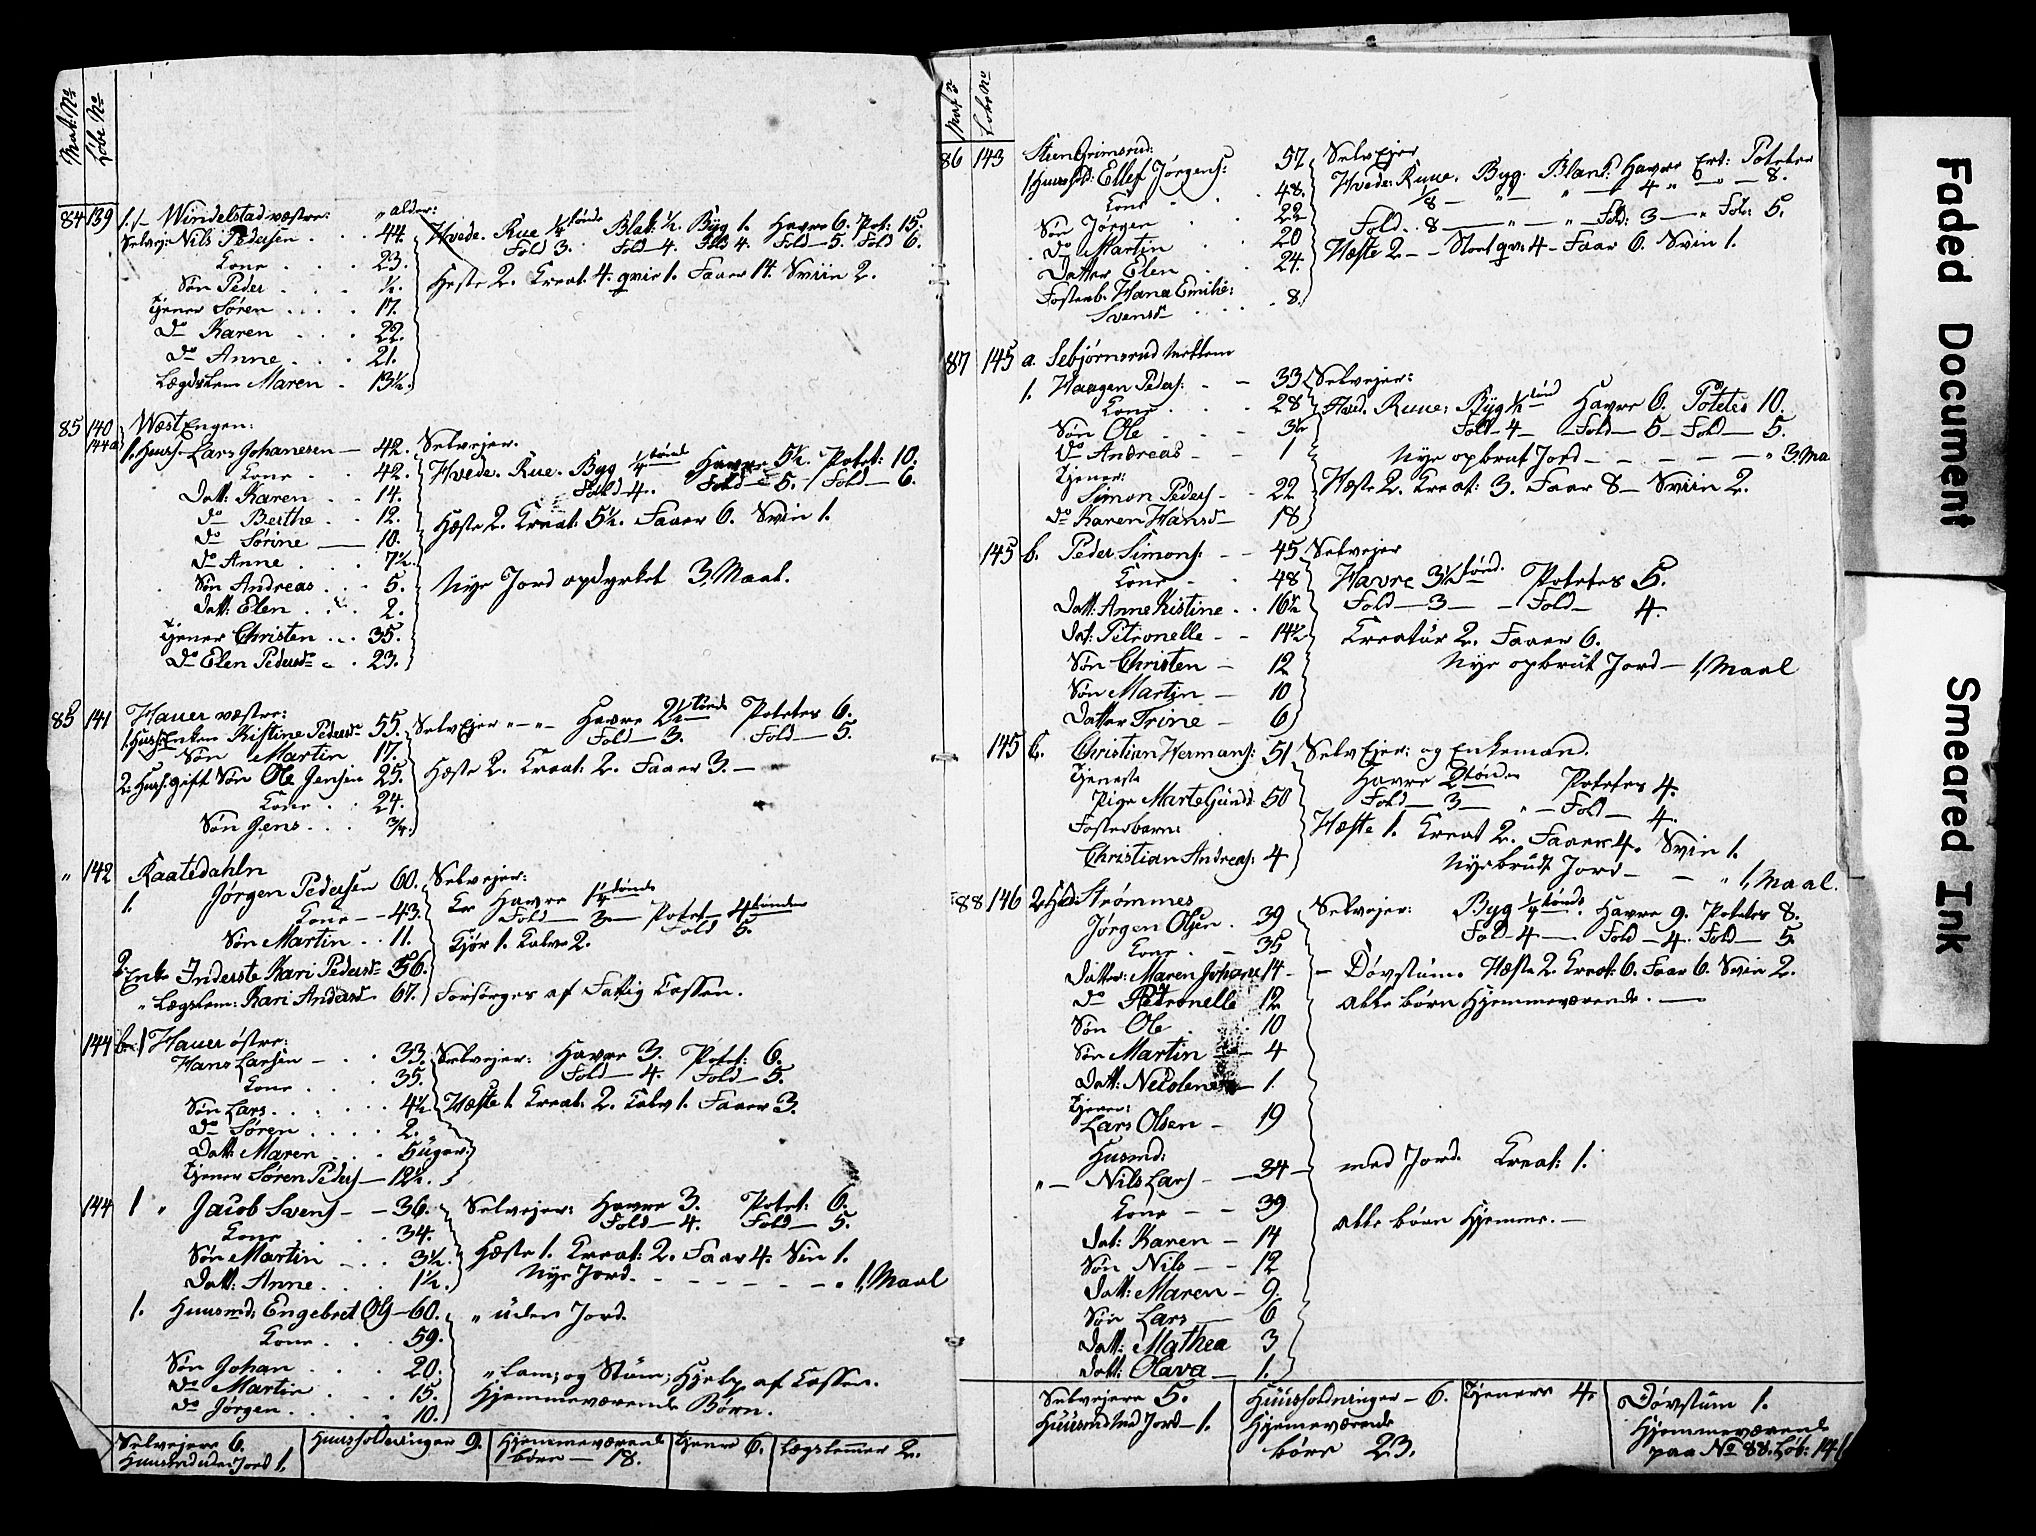 Mat: No
Løbe No
84 139 1.- Windelstad væstre: " alder:
Selvej: Nils Pedersen . . . 44. Hvede. Rue ¼ tønde Blak: ½. Byg 1. Havre 6. Pot: 15.
Fold 3. Fold 4. Fold 4. Fold 5. Fold 6.
Kone . . . 23.
Heste 2. Kreat: 4. qvie 1. Faaer 14. Sviin 2.
Søn Peder . . . ½.
Tjener Søren . . . . 17.
Do Karen . . . 22.
Do Anne . . . 21.
Lægdslem Maren . 13½.
85 140 West Engen:
144a
1. Huus. Lars Johanesen — 42. Selvejer.
Kone . . 42. Hvede. Rue. Byg ¼ tønde Havre 5½. Potet: 10.
Fold 4. Fold — 5. Fold — 6.
Datt: Karen . . 14.
Do Berthe . . 12.
Heste 2. Kreat: 5½. Faaer 6. Svin 1.
Do Sørine — 10.
Do Anne . . . 7½.
Søn Andreas . . . 5. Nye Jord opdyrket 3. Maal.
Datt: Elen . . . 2.
Tjener Christen . . . 35.
Do Elen Pedersdr . . 23.
85 141 Hauer væstre:
1. Huus: Enken Kistine Pedersdr 55. SelvEjer " — " — Havre 2½ tønde Potetes 6.
Fold — 3. Fold — 5.
Søn Martin 17.
2. Hus. gift Søn Ole Jensen 25. Heste 2. Kreat: 2. Faaer 3. —
Kone . . 24.
Søn Jens . . . ¾.
" 142 Kaatedahln
1. Jørgen Pedersen 60. Selvejer:
Havre 1¼ tønde
Kone — 43. Fold — 3 — Potet — 4 tønder
Fold 5.
Søn Martin . . 11. Kjør 1. Kalve 2.
2. Enke Inderste Kari Pedersdr 56.
" Lægslem: Kari Andersd 67. Forsørges af Fattig Cassen.
144 b. 1 Hauer østre:
Hans Larsen — . . 33. Selvejer: Havre 3. Potet: 6.
Fold — 4. Fold — 5.
Kone . . . 35.
Søn Lars . . . . 4½ Hæste 1. Kreat: 2. Kalv 1. Faaer 3.
Do Søren . . . . 2.
Datt: Maren . . . 5 uger.
Tjener Søren Peders — 12½.
144 1 " Jacob Svens — — 36. Selvejer: Havre 3. Potet: 6.
Fold — 4. Fold — 5.
Kone . . . 34.
Søn Martin . . . 3½. Hæste 1. Kreat: 2. Faar 4. Svin 1.
Datt: Anne . . . 1½. Nye Jord. — — — — — " 1, Maal
1. Huusmd: Engebret Ols — 60. " uden Jord.
Kone . . . 59.
Søn Johan . . . 20. " Lam; og Stum; Hjelp af Cassen.
Do Martin . . . 15. Hjemmeværende Børn.
Do Jørgen . . . 10.
Selvejere 6.
Huusmd uden Jord 1.
Huusholdninger 9.
Hjemmeværende
børn — 18.
Tjenere 6.
Lægslemmer 2.
Mat No
Løbe No
86 143 Steen Grimsrud:
1 Huushold: Ellef Jørgens: 57 SelvEjer
Hvede. Rue. Byg. Blank: Havre Ert: Poteter
Kone . . 48. ⅛ — " — " — 4 — 6 — " — 8.
Søn Jørgen 22 Fold . 8 — " — " — Fold: 3 — " Fold: 5.
Do Martin . . 20
Hæste 2 — Stort qv: 4 — Faar 6. Svin 1.
Datter Elen . . 24.
Fosterb. Hana Emilie:
Svensdr . . . . 8.
87 145 a. Sebjørnsrud mellem
1. Haagen Peders: — — 33 Selvejer:
Kone . . . 28 Hved. Rue: Byg ½ tønd Havre 6. Potetes 10.
Fold — 4 — Fold — 5 — Fold — 5.
Søn Ole . . — 3½
Do Andreas — — 1 Nye opbrut Jord — — — — — " 3. Ma
Tjener:
Simon Peders — . 22 Hæste 2. Kreat: 3. Faar 8 — Sviin 2.
Do Karen Hansd — 18
145 b. Peder Simons: — — 45 Selvejer
Kone . . 48 Havre 3½ tønd. Potetes 5.
Fold — 3 — — Fold — 4.
Datt: Anne Kistine . . 16½
Dat: Petronelle — — 14½ Kreatur 2. Faaer 6.
Søn Christen — 12 Nye opbrut Jord — 1, Maal
Søn Martin — 10
Datter Trine — 6
145 c. Christian Hermans: 51 SelvEjer: og Enkemand.
Tjeneste
Pige Marte Gunds 50 Havre 2 tønder Potetes 4.
Fold — 3 — " — Fold — 4.
Fosterbarn:
Hæste 1. Kreat 2. Faaer 4. Svin 1.
Christian Andreas: 4 Nyebrudt Jord — — " 1, Maal.
88 146 2. Hd: Strømnes
Jørgen Olsen . 39 Selvejer: Byg ¼ tønde. Havre 9. Potetes 8.
Fold 4 — Fold — 4. Fold — 5.
Kone . — 35
Datter: Maren Johane 14 — — Døvstum. Hæste 2. Kreat: 6. Faar 6. Svin 2.
Do Petronelle 12 alle børn Hjemmeværende. —
Søn Ole . . 10
Søn Martin — 4
Datt: Nicolene — 1.
Tjener:
Lars Olsen — 19
Husmd:
" — Nils Lars — — 34 — med Jord. Kreat: 1.
Kone — — 39 alle børn Hjemme. —
Dat: Karen — 14
Søn Nils — — 12
Datt: Maren — 9.
Søn Lars — 6
Datt: Mathea 3
Datt: Olava — 1.
Selvejere 5.
Huusmd med Jord — 1.
Huusholdninger — 6.
Hjemeværende
børn 23.
Tjenere 4.
Døvstum 1.
Hjemmeværende
paa No 88. Løb: 14
Faded Document
Smeared Ink